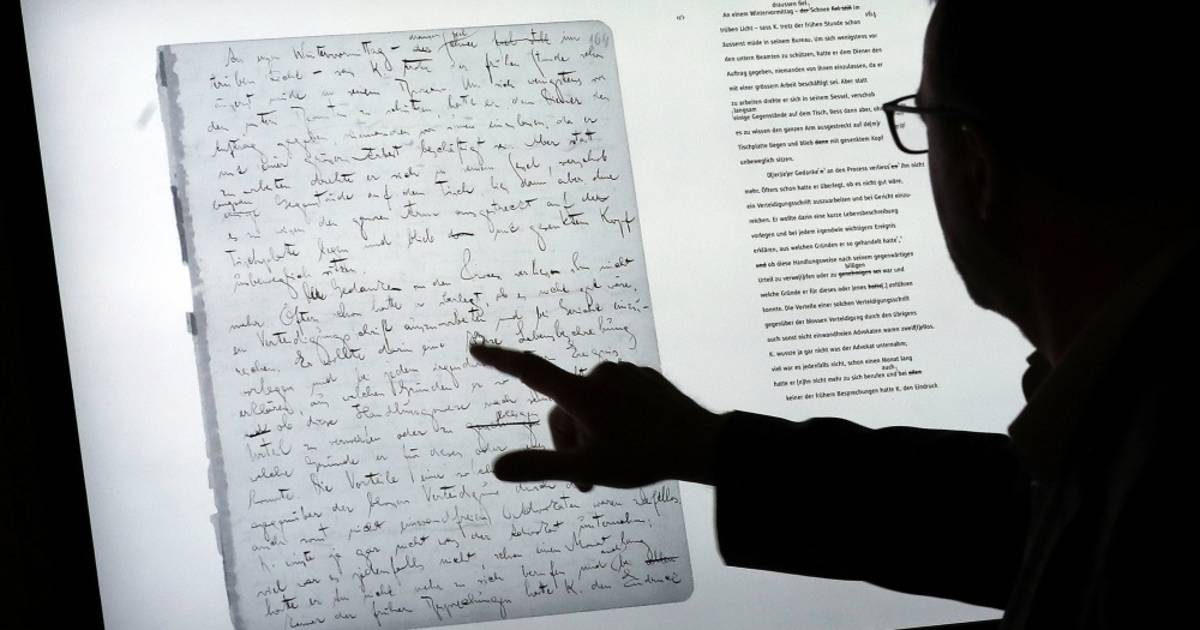 draussen fiel
An einem Wintervormittag – der Schnee fiel still im 164
trüben Licht – sass K. trotz der frühen Stunde schon
äusserst müde in seinem Bureau. Um sich wenigstens vor
den untern Beamten zu schützen, hatte er dem Diener den
Auftrag gegeben niemanden von ihnen einzulassen, da er
mit einer grössern Arbeit beschäftigt sei. Aber statt
zu arbeiten drehte er sich in seinem Sessel, verschob
langsam
einige Gegenstände auf dem Tisch, liess dann aber ohne
es zu wissen den ganzen Arm ausgestreckt auf der
Tischplatte liegen und blieb mit gesenktem Kopf
unbeweglich sitzen.
Der Gedanke an den Process verliess ihn nicht
mehr. Öfters schon hatte er überlegt, ob es nicht gut wäre,
ein Verteidigungsschrift auszuarbeiten und bei Gericht einzu-
reichen. Er wollte darin eine kurze Lebensbeschreibung
vorlegen und bei jedem irgendwie Ereignis
erklären, aus welchen Gründen er so
und ob diese Handlungsweise nach seinem
Urteil zu verwerfen oder zu
welche Gründe er für dieses oder
konnte. Die Vorteile einer solchen
gegenüber der blossen Verteidigung durch
auch sonst nicht einwandfreien Advokaten waren zweifellos.
K. wusste ja gar nicht was der Advokat unternahm;
viel war es jedenfalls nicht, schon einen Monat lang
hatte er ihn nicht mehr zu sich berufen und bei
keiner der frühern Besprechungen hatte K. den Eindruck
draussen fiel,
An einem Wintervormittag – der Schnee fiel still im
164
trüben Licht – sass K. trotz der frühen Stunde schon
äusserst müde in seinem Bureau. Um sich wenigstens vor
den untern Beamten zu schützen, hatte er dem Diener den
Auftrag gegeben, niemanden von ihnen einzulassen, da er
mit einer grössern Arbeit beschäftigt sei. Aber statt
zu arbeiten drehte er sich in seinem Sessel, verschob
langsam
einige Gegenstände auf dem Tisch, liess dann aber, ohne
es zu wissen den ganzen Arm ausgestreckt auf de[m]r
Tischplatte liegen und blieb dann mit gesenktem Kopf
unbeweglich sitzen.
Gedanke an den Process verliess ihn nicht
mehr. Öfters schon hatte er überlegt, ob es nicht gut wäre,
ein Verteidigungsschrift auszuarbeiten und bei Gericht einzu-
reichen. Er wollte darin eine kurze Lebensbeschreibung
vorlegen und bei jedem irgendwie wichtigern Ereignis
erklären, aus welchen Gründen er so gehandelt hatte,
und ob diese Handlungsweise nach seinem gegenwärtigen
billigen
Urteil zu verwerfen oder zu genehmigen sei war und
welche Gründe er für dieses oder jenes hatte[.] anführen
konnte. Die Vorteile einer solchen Verteidigungsschrift
gegenüber der blossen Verteidigung durch den übrigens
auch sonst nicht einwandfreien Advokaten waren zweif[f]ellos.
K. wusste ja gar nicht was der Advokat unternahm;
viel war es jedenfalls nicht, schon einen Monat lang
auch
hatte er [n]ihn nicht mehr zu sich berufen und bei allen
keiner der frühern Besprechungen hatte K. den Eindruck